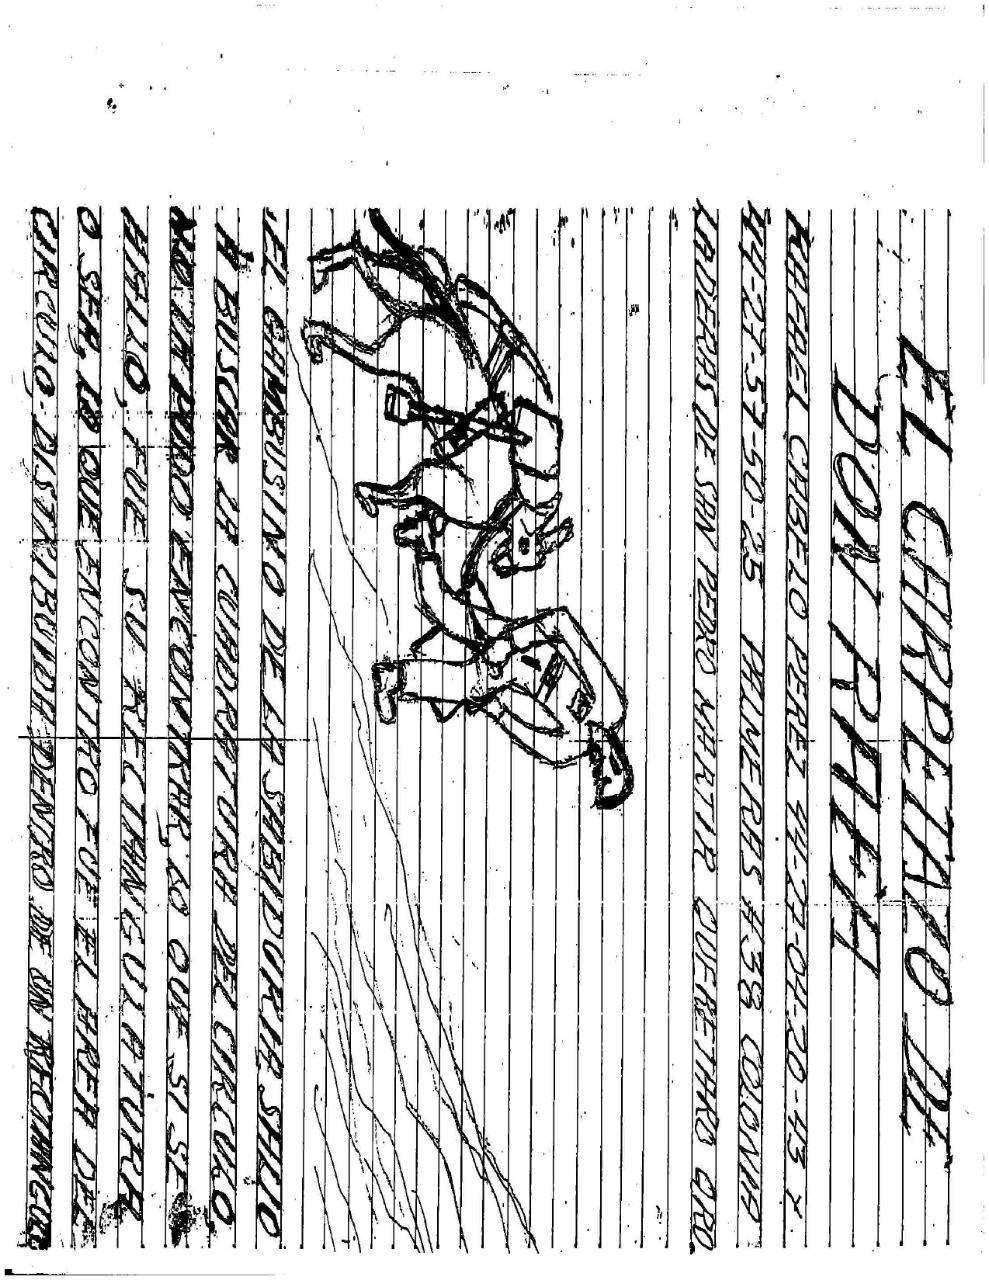 EL CARPETAZO DE
DON RAFA
RAFAEL CABELLO PEREZ 44-27-04-20-43 Y
44-27-57-50-25 PALMERAS #38 COLONIA
LADERAS DE SAN PEDRO MARTIR QUERETARO QRO
.EL GAMBUSINO DE LA SABIDURIA, SALIO
A BUSCAR LA CUADRATURA DEL CIRCULO
NO LA PUDO ENCONTRAR, LO QUE SI SE
HALLO, FUE SU RECTANGULATURA
O SEA, LO QUE ENCONTRO FUE EL AREA DEL
CIRCULO-DISTRIBUIDA DENTRO DE UN RECTANGULO